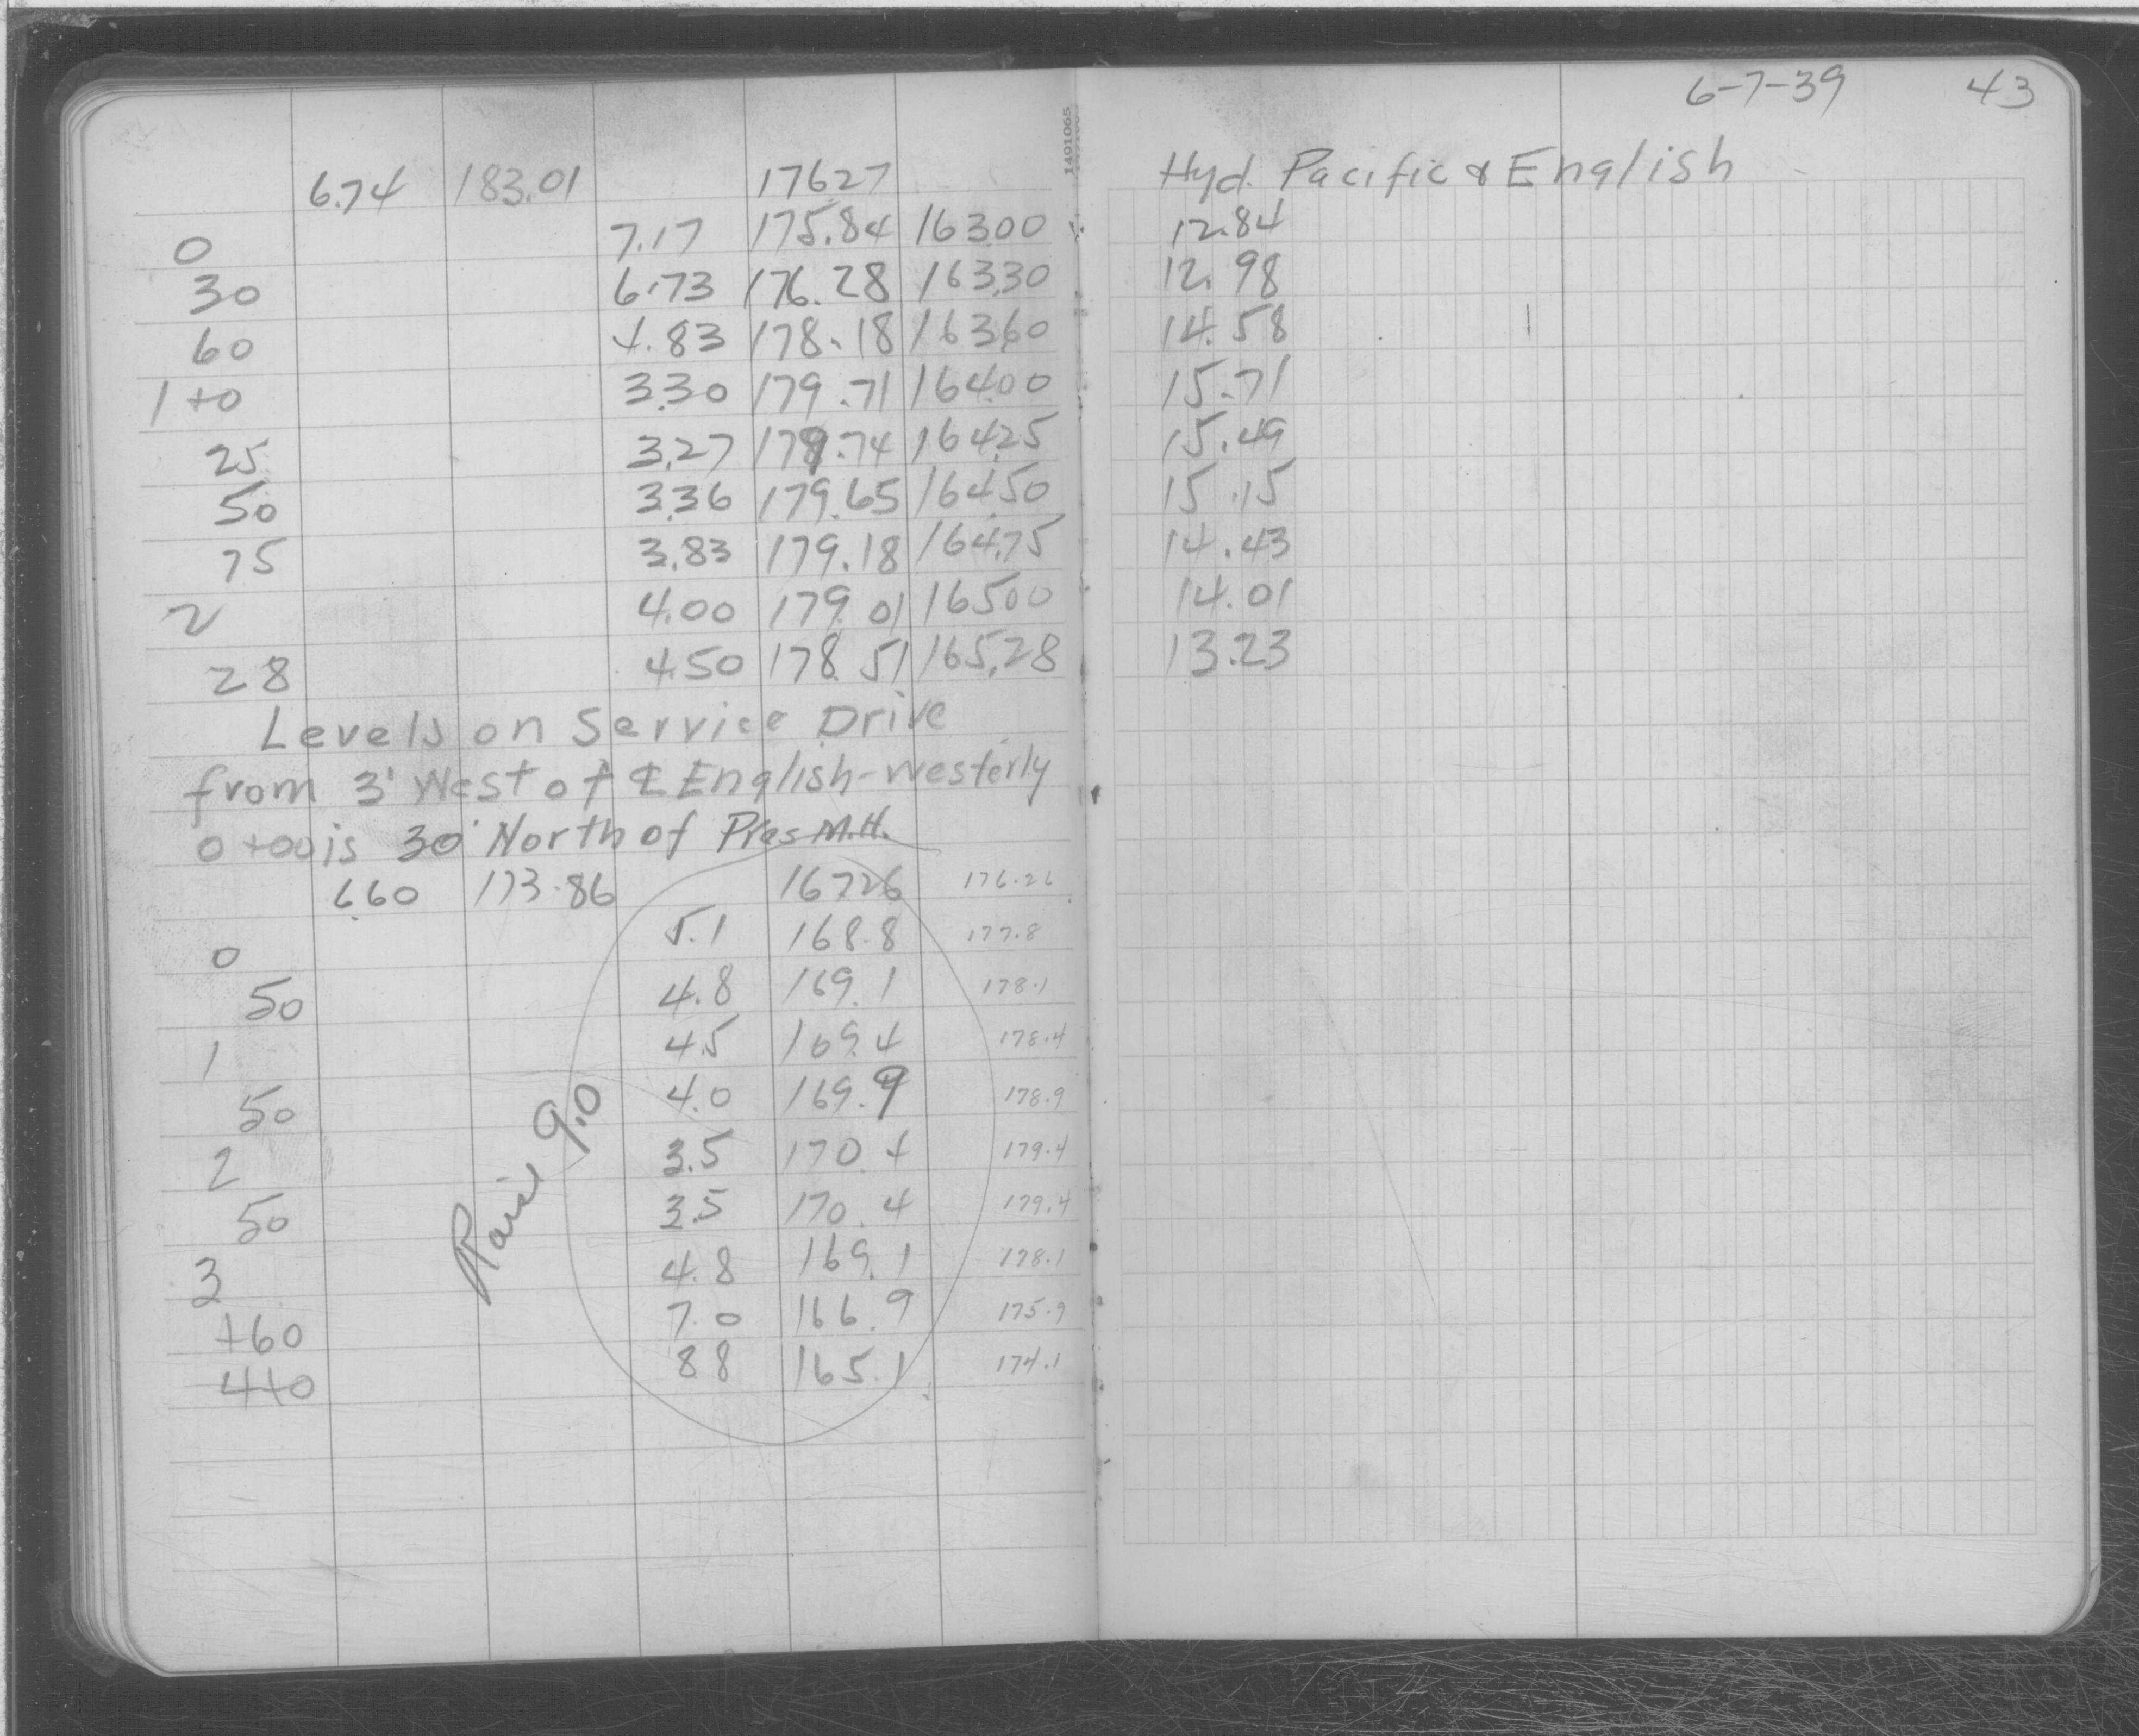 6-7-39 43
6.74 183.01 176.27 Hyd. Pacific & English
0 7.17 175.84 163.00 12.84
30 6.73 176.28 163.30 12.98
60 4.83 178.18 163.60 14.58
1+0 3.30 179.71 164.00 15.71
25 3.27 179.74 164.25 15.49
50 3.36 179.65 164.50 15.15
75 3.83 179.18 164.75 14.43
2 4.00 179.01 165.00 14.01
28 4.50 178.51 165.28 13.23
Levels on Service Drive
from 3' West of ℄ English-Westerly
0+00 is 30' North of Pres M.H.
6.60 173.86 167.26 176.26
0 5.1 168.8 177.8
50 4.8 169.1 178.1
1 4.5 169.4 178.4
50 4.0 169.9 178.9
2 3.5 170.4 179.4
50 3.5 170.4 179.4
3 4.8 169.1 178.1
+60 7.0 166.9 175.9
4+0 8.8 165.1 174.1
Raise 9.0
1491065